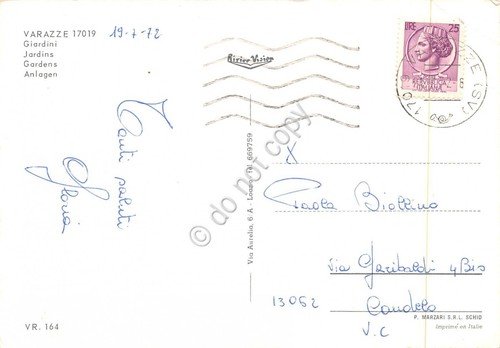 VARAZZE 17019
Giardini
Jardins
Gardens
Anlagen
19-7-72
Tanti saluti
Gloria
VR. 164
River Visior
Via Aurelia, 6 A - Loano Tel. 669759
LIRE 25
REPUBBLICA
ITALIANA
ZE (SV)
170
X
Paola Biollino
Via Garibaldi 4 Bis
13062 Candelo
V.C
P. MARZARI S.R.L. SCHIO
Imprimé en Italie
do not copy